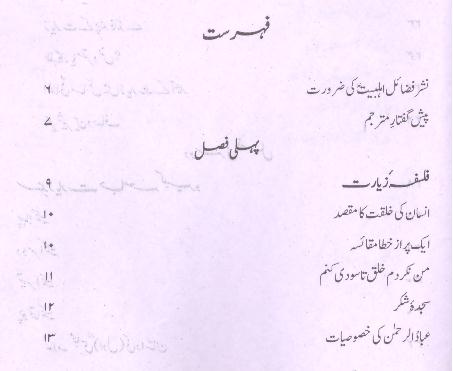 فہرست
نشر فضائل اہلبیتؑ کی ضرورت ۶
پیش گفتار مترجم ۷
پہلی فصل
فلسفۂ زیارت ۹
انسان کی خلقت کا مقصد ۱۰
ایک پر از خطا مقائسہ ۱۰
من نکردم خلق تا سودی کنم ۱۱
سجدۂ شکر ۱۲
عبادُ الرحمٰن کی خصوصیات ۱۳